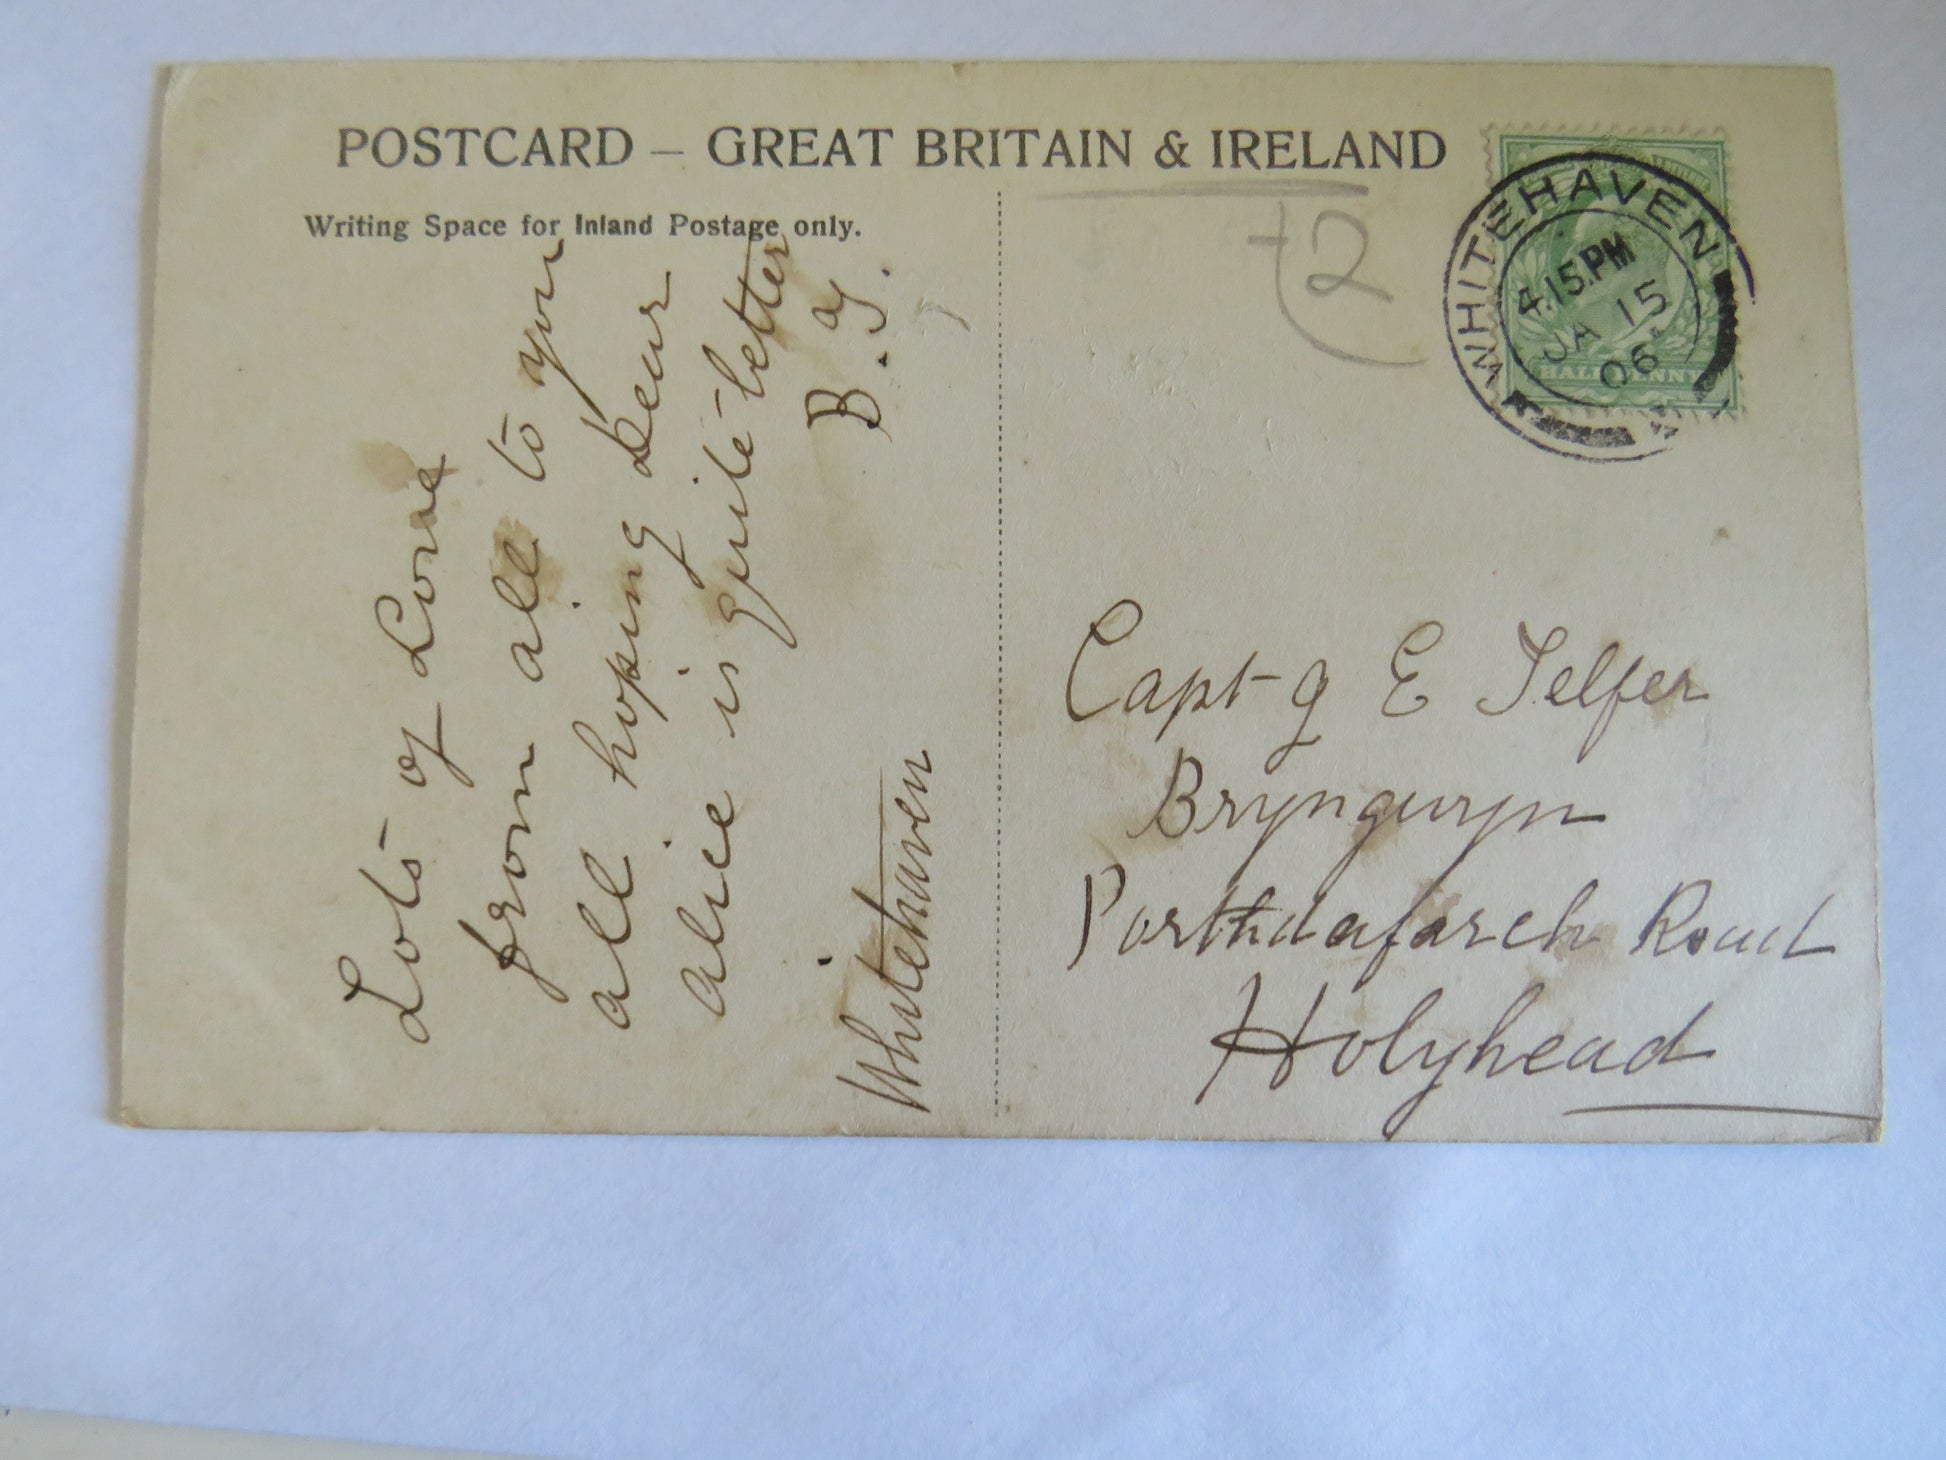 POSTCARD – GREAT BRITAIN & IRELAND
Writing Space for Inland Postage only.
Lots of Love
from all to you
all hoping Dear
Alice is quite better
B. J.
Whitehaven
2
WHITEHAVEN
4.15.PM
JA 15
06
HALFPENNY
Capt G E Telfer
Bryngwyn
Porthdafarch Road
Holyhead